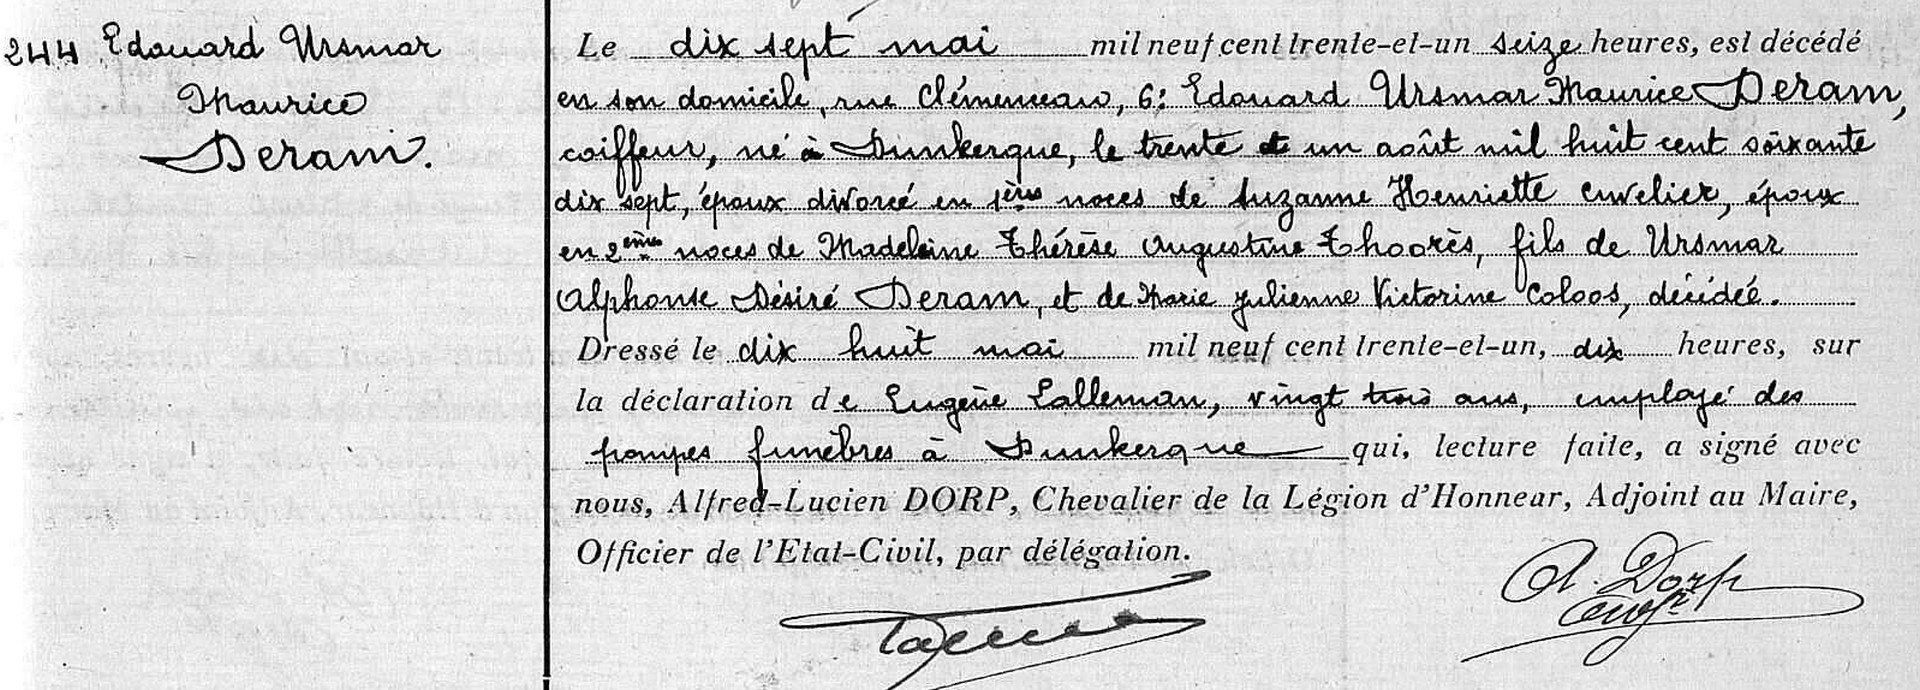 244 Edouard Ursmar
Maurice
Deram.
Le dix sept mai mil neuf cent trente-et-un seize heures, est décédé
en son domicile, rue Clémenceau, 6: Edouard Ursmar Maurice Deram,
coiffeur, né à Dunkerque, le trente et un août mil huit cent soixante
dix sept, époux divorcé en 1ères noces de Suzanne Henriette Cuvelier, époux
en 2èmes noces de Madeleine Thérèse Augustine Thoorès, fils de Ursmar
Alphonse Désiré Deram, et de Marie Julienne Victorine Coloos, décédée.
Dressé le dix huit mai mil neuf cent trente-et-un, dix heures, sur
la déclaration de Eugène Lalleman, vingt trois ans, employé des
pompes funèbres à Dunkerque qui, lecture faite, a signé avec
nous, Alfred-Lucien DORP, Chevalier de la Légion d'Honneur, Adjoint au Maire,
Officier de l'Etat-Civil, par délégation.
A. Dorp